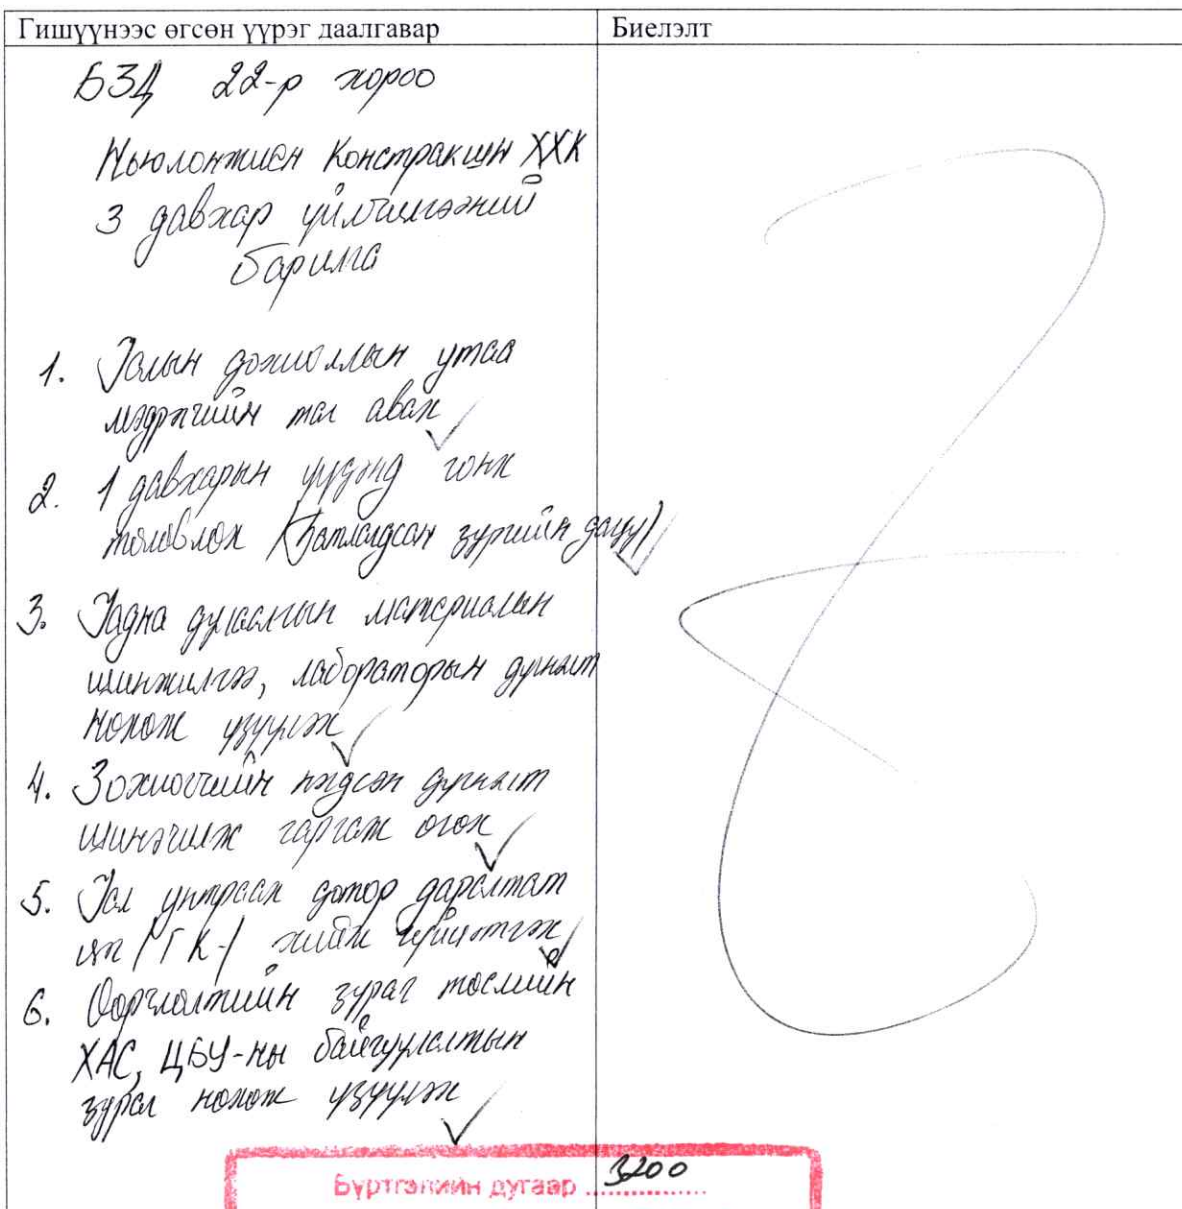 Гишүүнээс өгсөн үүрэг даалгавар
Биелэлт
БЗД 22-р хороо
Ньюлонжиен Констракшн ХХК
3 давхар үйлчилгээний
барилга
1. Галын дохиоллын утаа
мэдрэгчийн тал авах
2. 1 давхарын үүдэнд гонх
төлөвлөх /батлагдсан зургийн дагуу/
3. Гадна дулаалгын материалын
шинжилгээ, лабораторын дүгнэлт
нөхөж үзүүлэх
4. Зохиогчийн нэгдсэн дүгнэлт
шинэчилж гаргаж өгөх
5. Гал унтраах дотор даралтат
цэг /ГК-/ хийж гүйцэтгэх
6. Өөрчлөлтийн зураг төслийн
ХАС, ЦБУ-ны байгууламтын
зурал нөхөж үзүүлэх
Бүртгэлийн дугаар 3200